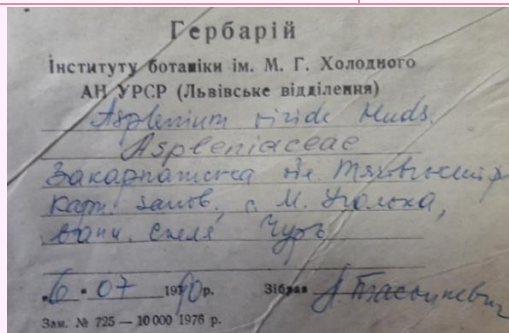 Гербарій
Інституту ботаніки ім. М. Г. Холодного
АН УРСР (Львівське відділення)
Asplenium viride Huds.
Aspleniaceae
Закарпатська обл. Тячівський р
Карп. запов., с. М. Уголька,
вапн. скеля Чур
6 • 07 1990р. Зібрав
Зам. № 725 — 10 000 1976 р.